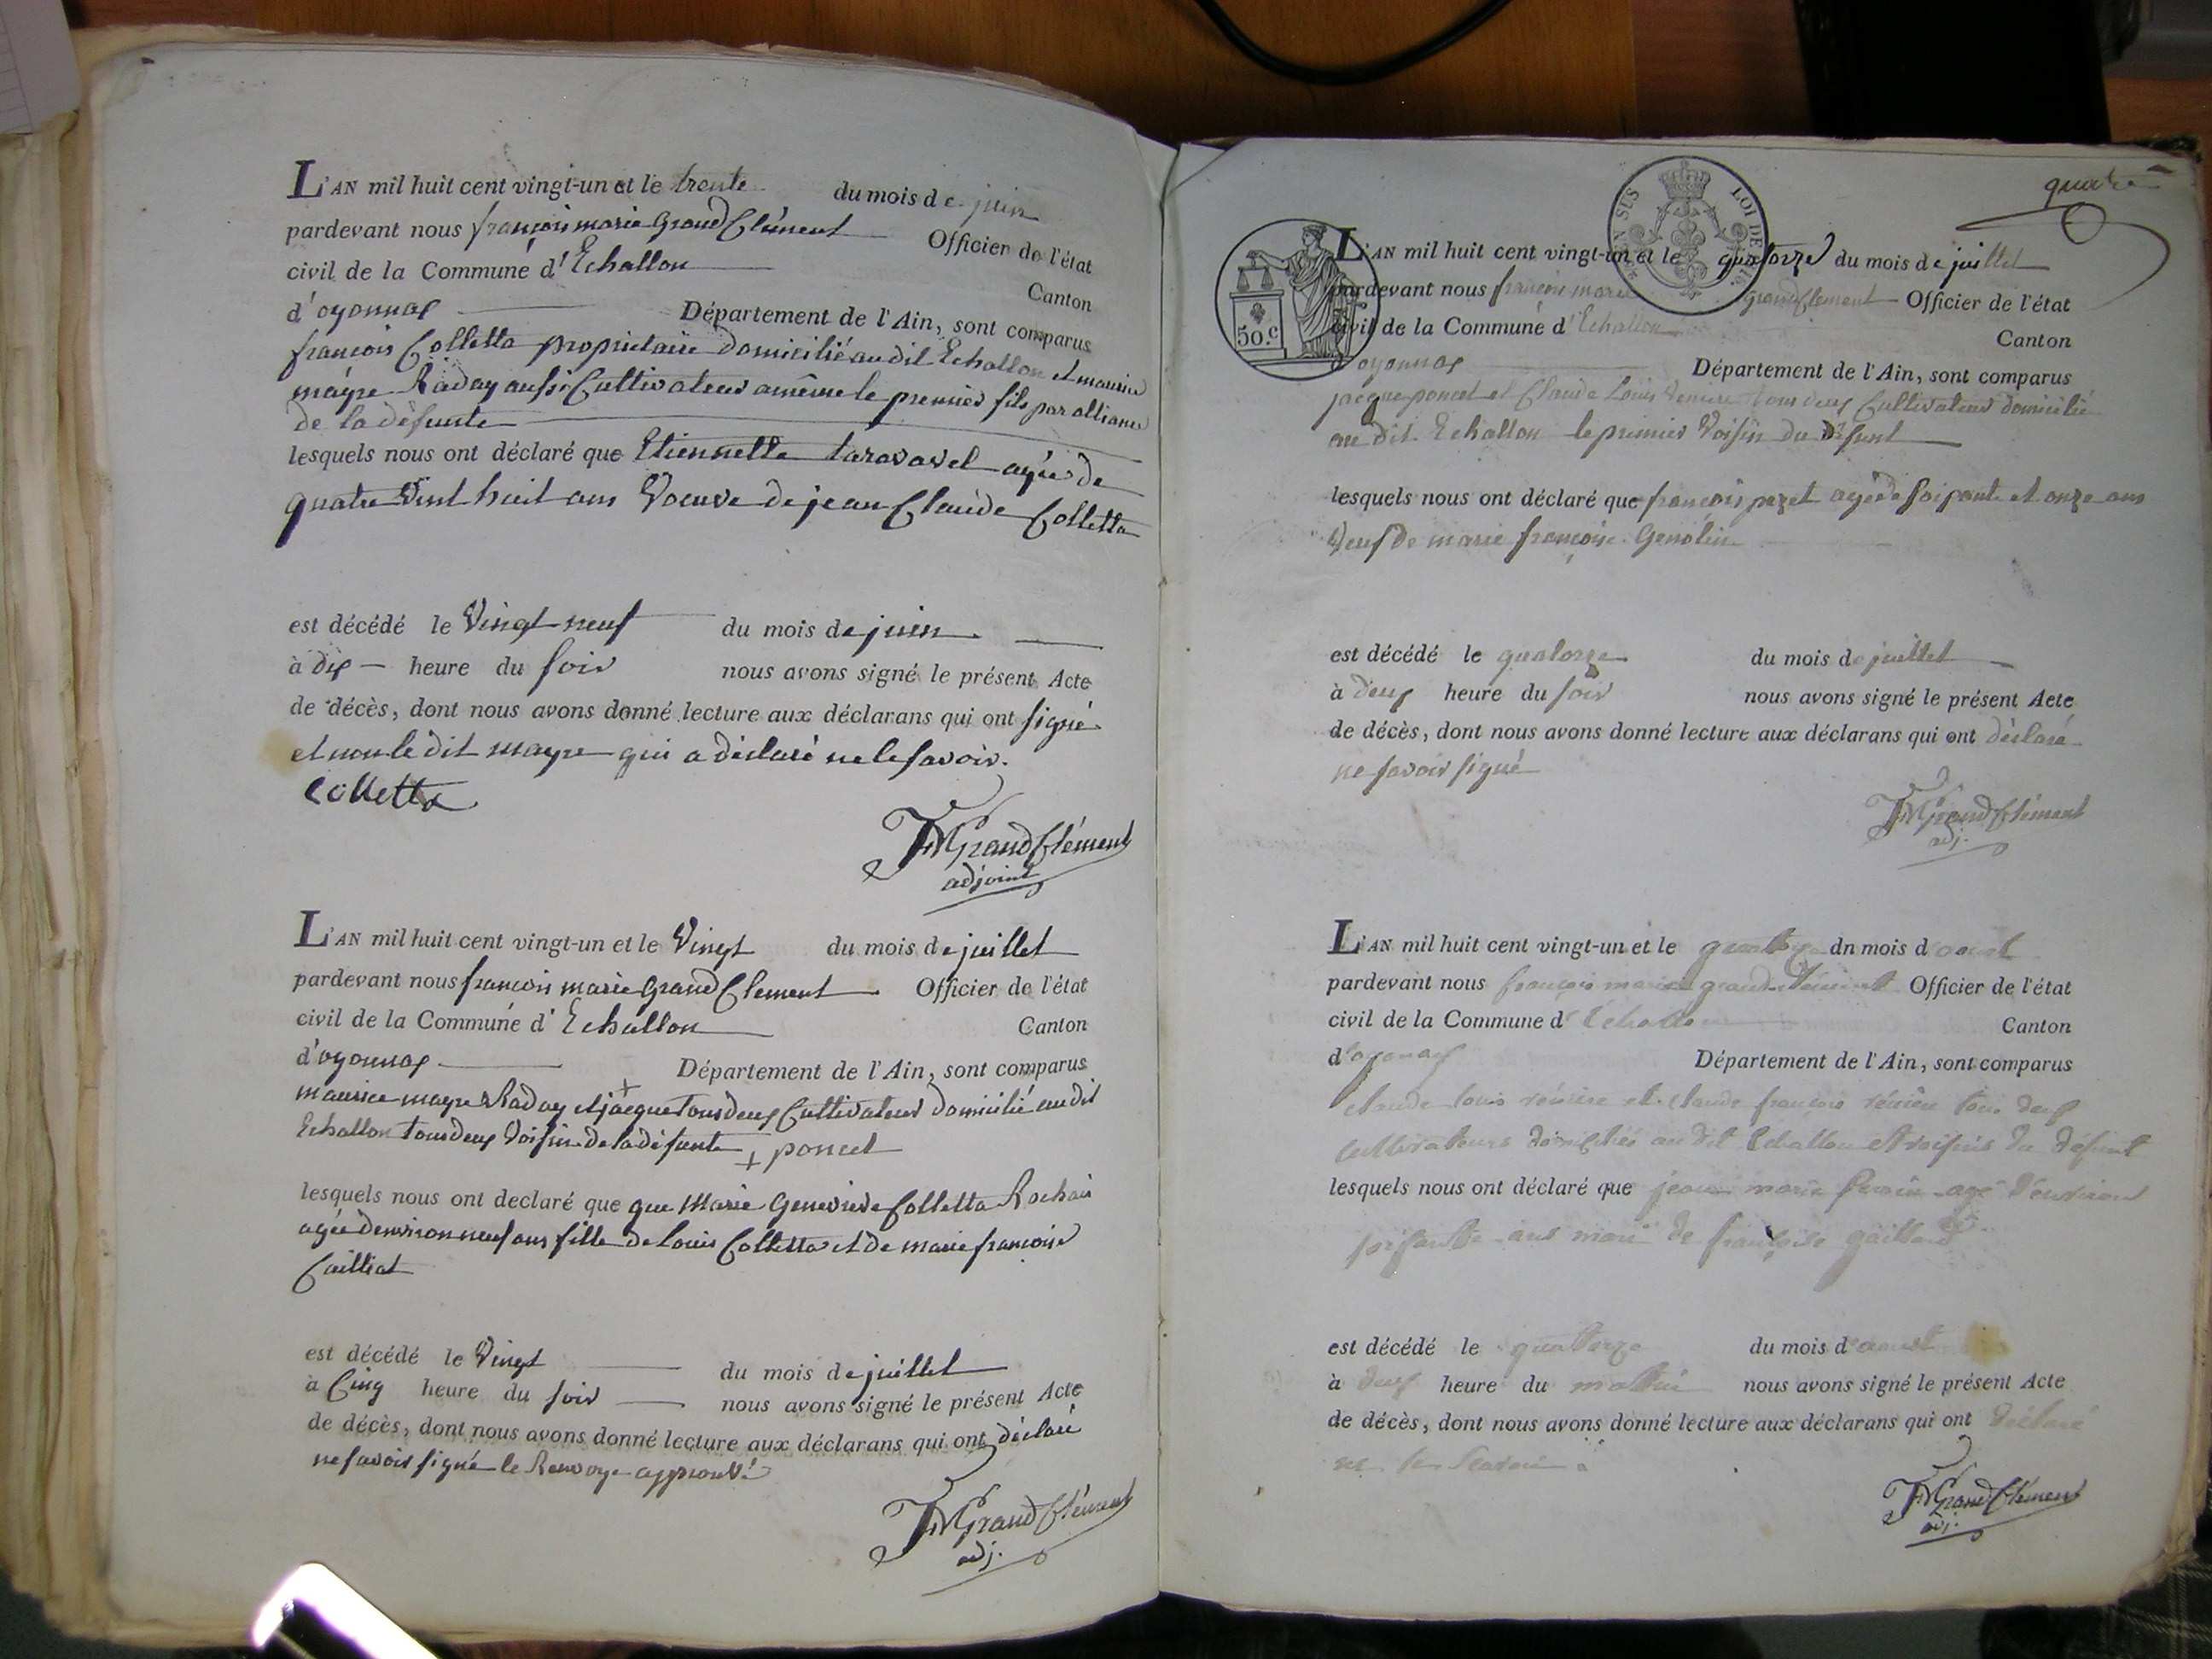 L'AN mil huit cent vingt-un et le trente du mois de juin
pardevant nous françois marie Grand Clément Officier de l'état
civil de la Commune d'Echallon Canton
d'oyonnax Département de l'Ain, sont comparus
françois Colletta proprietaire domicilié au dit Echallon et maurice
mayre Raday aussi Cultivateur a même le premier fils par alliance
de la défunte
lesquels nous ont déclaré que Etiennette taravavel agée de
quatre vint huit ans Veuve de jean Claude Colletta
est décédé le Vingt neuf du mois de juin
à dix heure du soir nous avons signé le présent Acte
de décès, dont nous avons donné lecture aux déclarans qui ont signé
et non le dit mayre qui a déclaré ne le savoir.
Colletta
FMGrandClément
adjoint
L'AN mil huit cent vingt-un et le Vingt du mois de juillet
pardevant nous françois marie Grand Clement Officier de l'état
civil de la Commune d'Echallon Canton
d'oyonnax Département de l'Ain, sont comparus
maurice mayre Raday et jacque + tous deux Cultivateur domicilié au dit
Echallon tous deux Voisin de la défunte + poncet
lesquels nous ont declaré que que Marie Genevieve Colletta Rochais
agée denviron neuf ans fille de Louis Colletta et de marie françoise
Cailliat
est décédé le Vingt du mois de juillet
à Cinq heure du soir nous avons signé le présent Acte
de décès, dont nous avons donné lecture aux déclarans qui ont déclaré
ne savoir signé le Renvoye approuvé
FMGrandClément
adj.
quatre
LOI DE
50.c
L'AN mil huit cent vingt-un et le quatorze du mois de juillet
pardevant nous françois marie grand Clement Officier de l'état
civil de la Commune d'Echallon Canton
d'oyonnax Département de l'Ain, sont comparus
jacque poncet et Claude Louis tous deux Cultivateur domicilié
au dit Echallon le premier Voisin du défunt
lesquels nous ont déclaré que françois pezet agé de soixante et onze ans
Veuf de marie françoise Genolin
est décédé le quatorze du mois de juillet
à deux heure du soir nous avons signé le présent Acte
de décès, dont nous avons donné lecture aux déclarans qui ont déclaré
ne savoir signé
FMGrandClément
adj.
L'AN mil huit cent vingt-un et le quatorze dn mois d'aoust
pardevant nous françois marie grand Clément Officier de l'état
civil de la Commune d'Echallon Canton
d'oyonnax Département de l'Ain, sont comparus
claude louis et claude françois tous deux
cultivateurs domiciliés au dit Echallon et voisins du défunt
lesquels nous ont déclaré que jean marie perrin agé d'environ
soixante ans mari de françoise gaillard
est décédé le quatorze du mois d'aoust
à deux heure du matin nous avons signé le présent Acte
de décès, dont nous avons donné lecture aux déclarans qui ont déclaré
ne le savoir
FMGrandClément
adj.